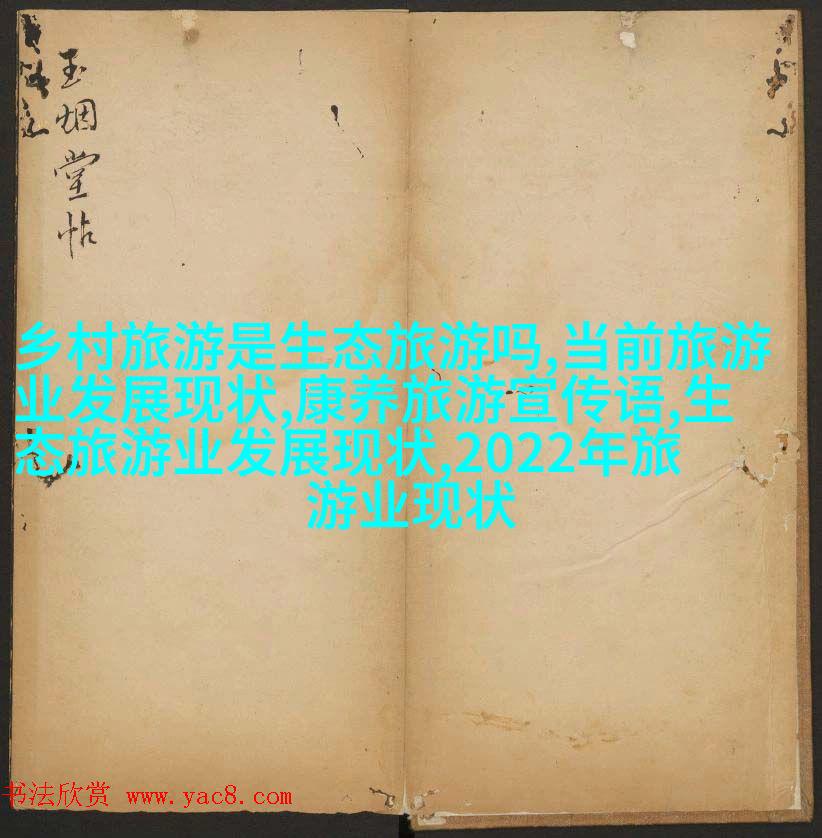 玉烟堂帖
乡村旅游是生态旅游吗,当前旅游
业发展现状,康养旅游宣传语,生
态旅游业发展现状,2022年旅
游业现状
书法欣赏 www.yac8.com